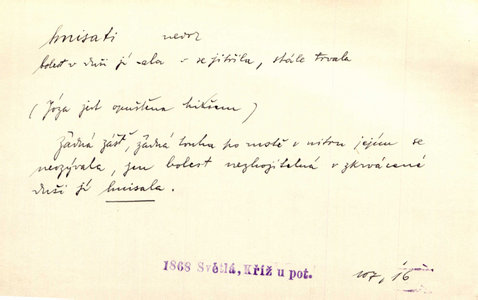 hnisati nedok
bolest v duši jí -ala = se jitřila, stále trvala
(Józa jest opuštěna
Žádná zášť, žádná touha po mstě v nitru jejím se
neozývala, jen bolest nezhojitelná v zkrvácené
duši jí hnisala.
1868 Světlá, Kříž u pot.
107, 16